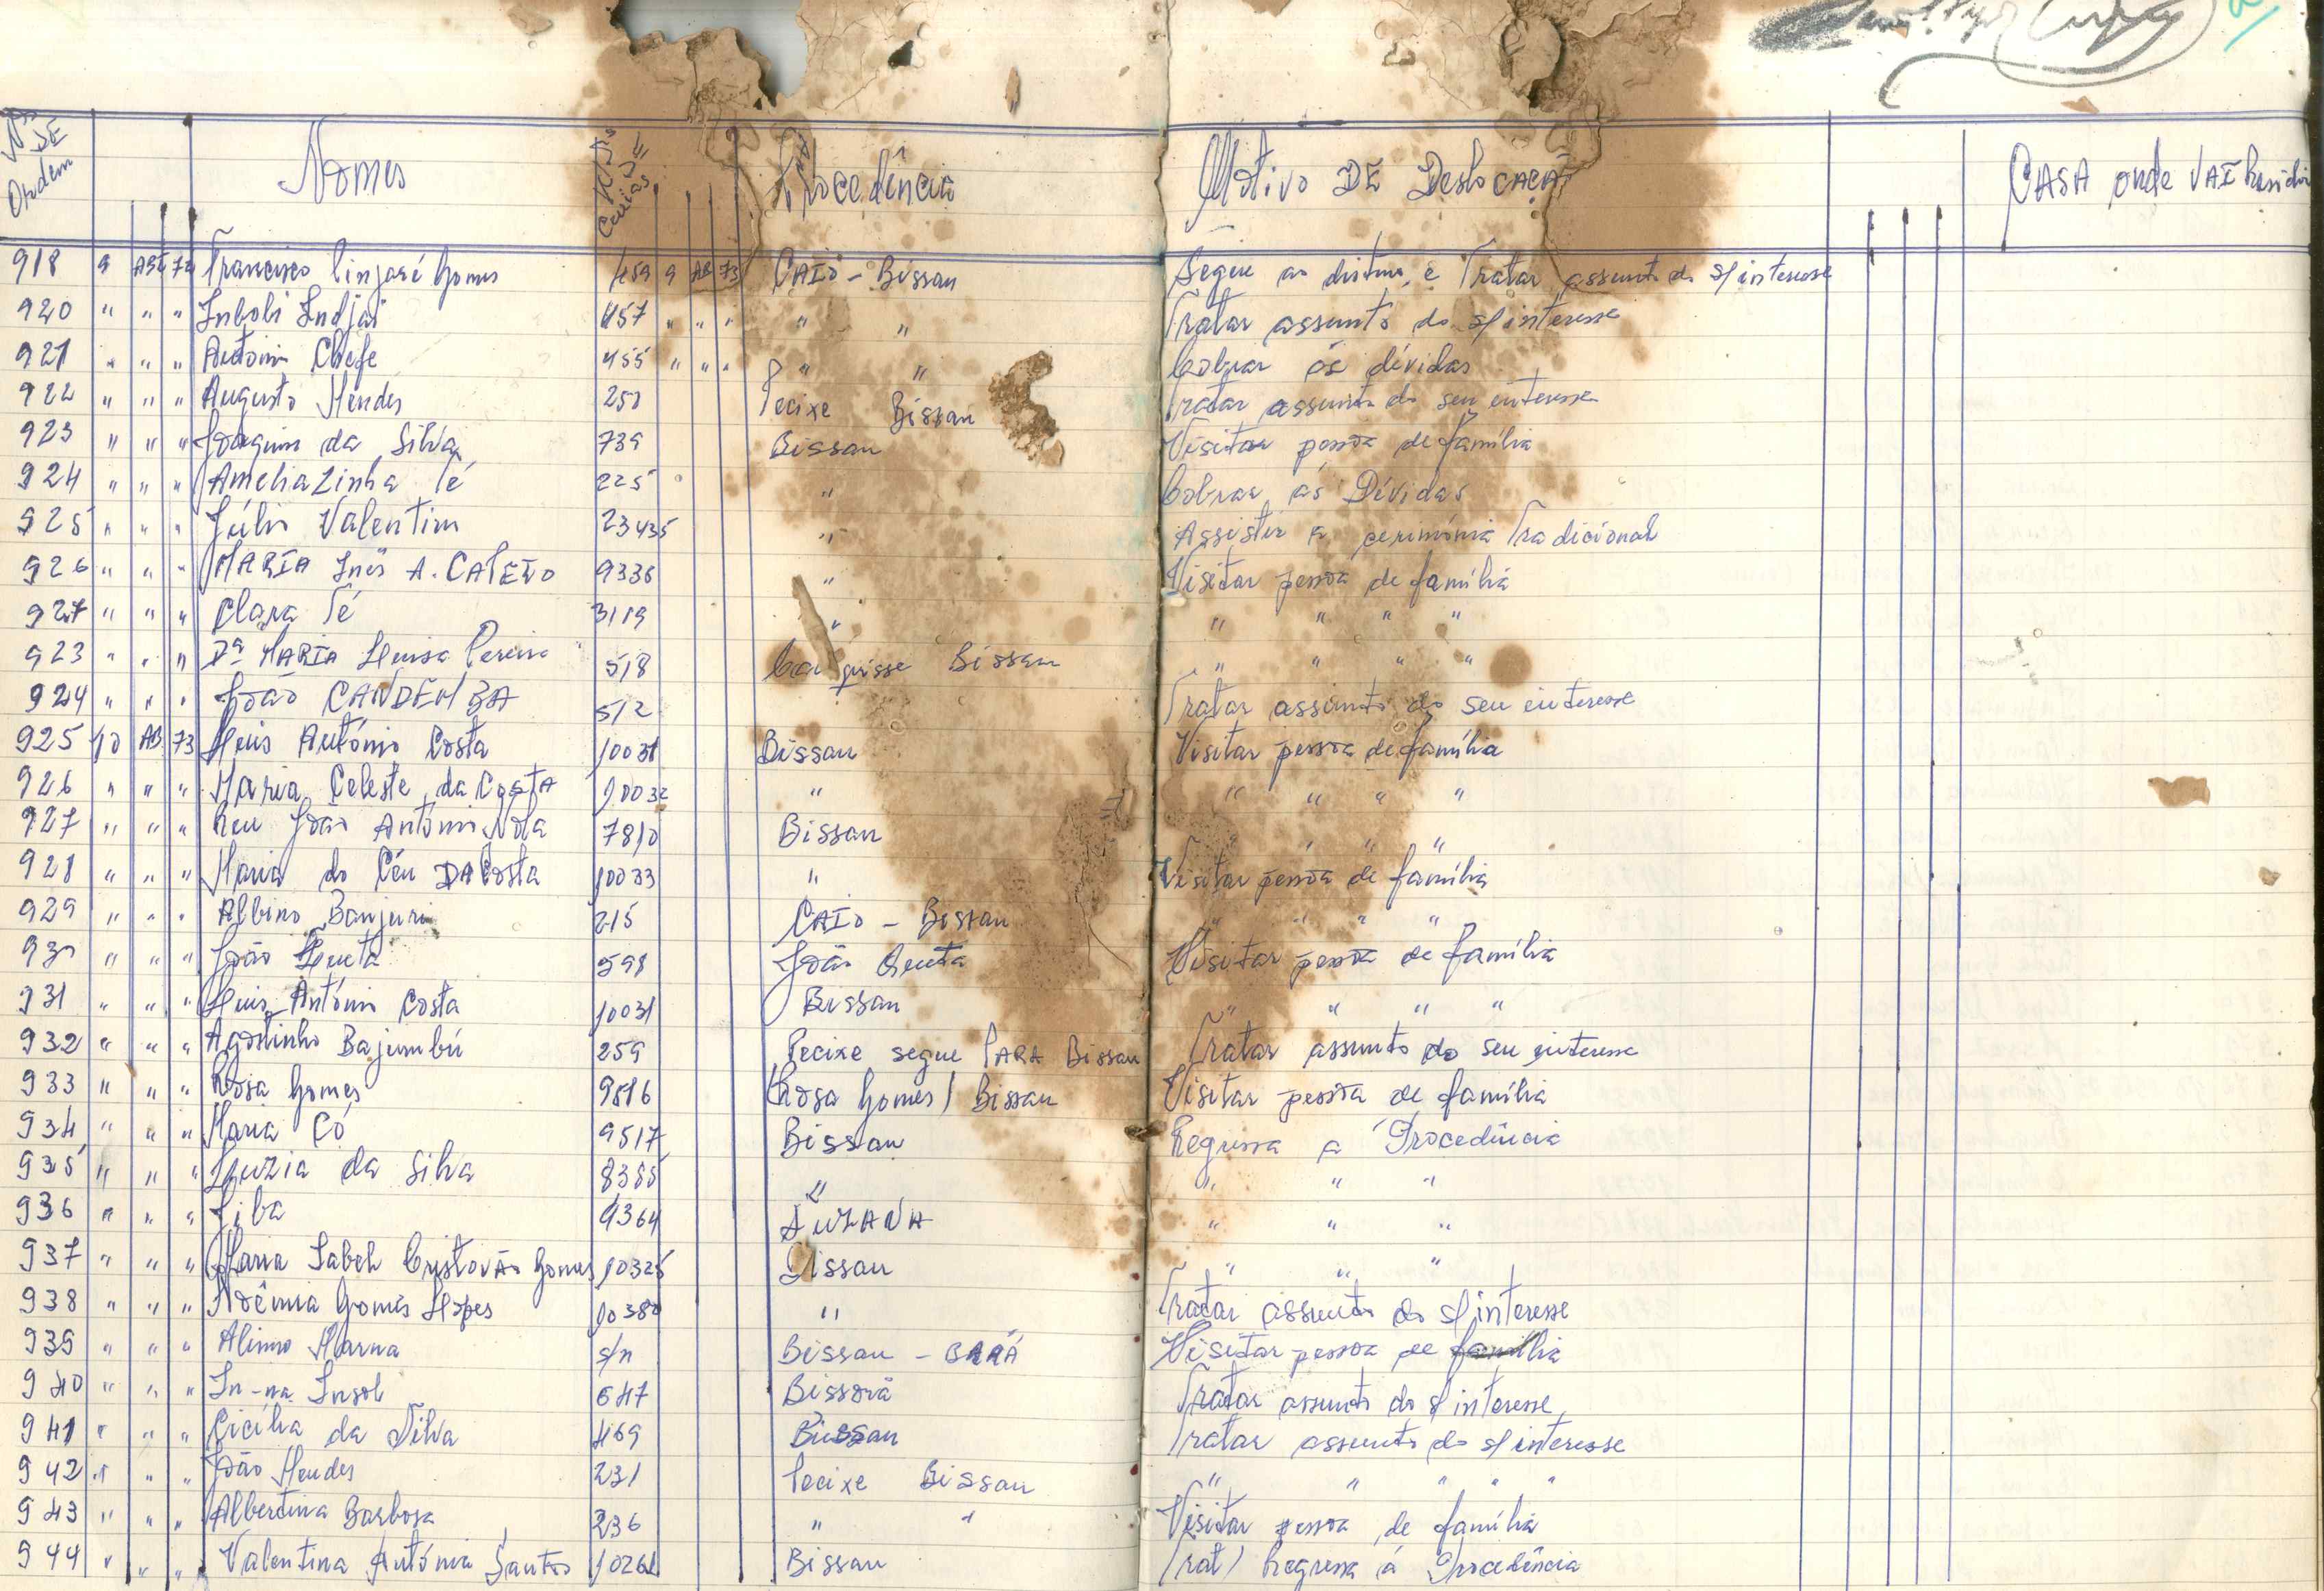 Nºs DE Ordem Nomes Procedência Motivo DE Deslocaçã CASA onde VAI Residir
918 9 AB 73 Francisco Cinjaré Gomes 459 9 AB 73 CAIÓ - Bissau Segue ao distino e Tratar assunto do s/interesse
920 " " " Inboli Indjai 457 " " " " " Tratar assunto do s/interesse
921 " " " Antóni Chefe 455 " " " " " Cobrar ás dívidas
922 " " " Augusto Mendes 250 Pecixe Bissau Tratar assunto do seu enteresse
923 " " " Joaquim da Silva 739 Bissau Visitar pessoa de família
924 " " " Amelia Zinha Té 225 " Cobrar ás Dívidas
925 " " " Júlio Valentim 23435 " Assistir a cerimónia Tradicional
926 " " " MARIA Inês A. CATEIO 9336 " Visitar pessoa de família
927 " " " Clara Té 3119 " " " " "
923 " " " Dª MARIA Luisa Pereira 518 Bissau " " " "
924 " " " João CANDEM BA 512 Tratar assunto do seu enteresse
925 10 AB 73 Luis António Costa 10031 Bissau Visitar pessoa de família
926 " " " Maria Celeste da Costa 10032 " " " " "
927 " " " João António Nola 7810 Bissau " " " "
928 " " " Maria do Céu DA Costa 10033 " Visitar pessoa de família
929 " " " Albino Banjuri 215 CAIÓ - Bissau " " " "
930 " " " João Quetá 598 João Quetá Visitar pessoa de família
931 " " " Luis Antóni Costa 10031 Bissau " " " "
932 " " " Agostinho Bajumbú 259 Pecixe segue PARA Bissau Tratar assunto do seu enteresse
933 " " " Rosa Gomes 9516 (Rosa Gomes) Bissau Visitar pessoa de família
934 " " " Maria Có 9517 Bissau Regressa a Procedência
935 " " " Luzia da Silva 8355 " " " "
936 " " " Liba 9364 SUZANA " " "
937 " " " Maria Isabel Cristovão Gomes 10325 Bissau " " "
938 " " " Noêmia Gomes Lopes 10380 " Tratar assunto do s/interesse
939 " " " Alinno Marna s/n Bissau - BARÁ Visitar pessoa de família
940 " " " In-na Insol 647 Bissorã Tratar assunto do s/interesse
941 " " " Cicília da Silva 469 Bissau Tratar assunto do s/interesse
942 " " " João Mendes 231 Pecixe Bissau " " " " "
943 " " " Albertina Barbosa 236 " " Visitar pessoa de família
944 " " " Valentina Antónia Santos 10261 Bissau (rat) Regressa á Procedência